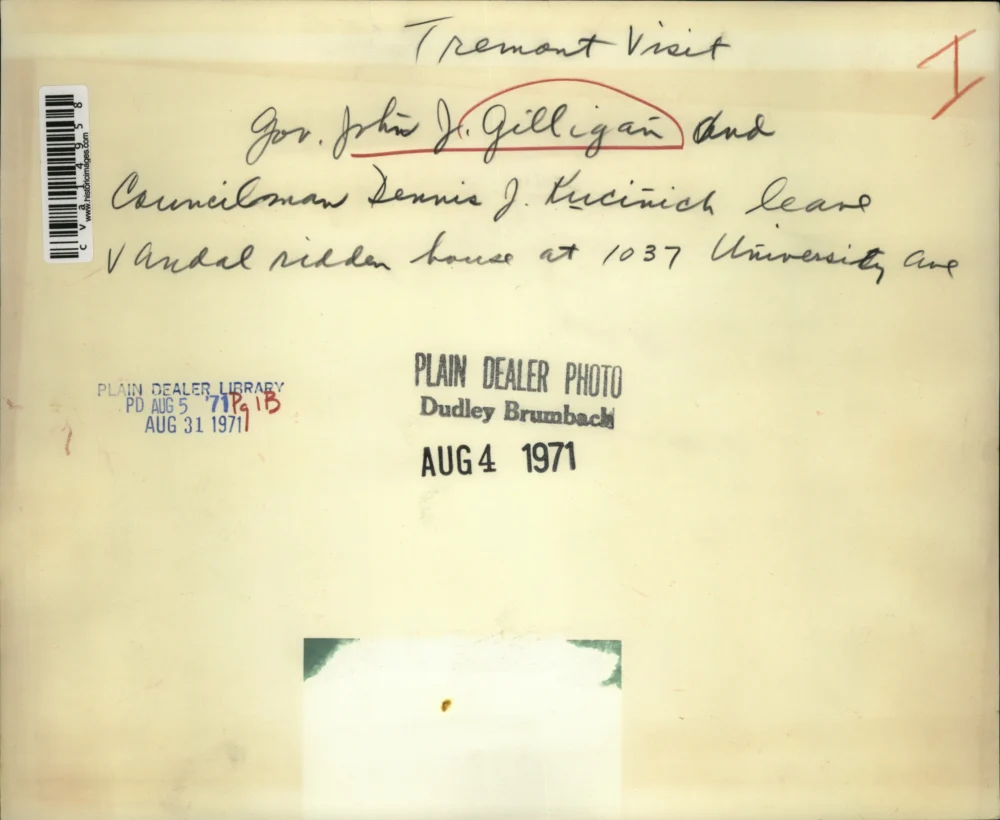 Tremont Visit
I
Gov. John J. Gilligan and
Councilman Dennis J. Kucinich leave
Vandal ridden house at 1037 University Ave
cva14958
www.historicimages.com
PLAIN DEALER LIBRARY
PD AUG 5 '71 Pg 1B
AUG 31 1971
PLAIN DEALER PHOTO
Dudley Brumbach
AUG 4 1971